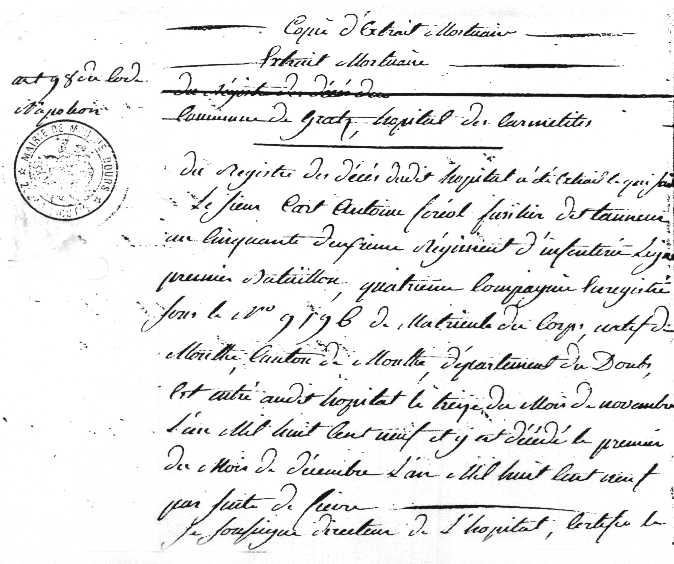 Copie d'Extrait Mortuaire
Extrait Mortuaire
art 98 du Code
Napoléon
du Régistre des décés du
Commune de Gratz, hopital des Carmelites
MAIRIE DE MOUTHE DOUBS
du Registre des décés dudit hopital a été Extrait le qui suit
Le sieur Cart Antoine féréol fusilier
au Cinquante deuxieme Régiment d'infanterie Ligne
premier Bataillon, quatrieme Compagnie Enregistré
sous le Nro 9196 de Matricule du Corps, natif de
Mouthe, Canton de Mouthe, département du Doubs,
Est entré audit hopital le treize du Mois de novembre
L'an Mil huit Cent neuf et y est décédé le premier
du Mois de décembre L'an Mil huit Cent neuf
par suite de fievre
Je soussigné directeur de L'hopital, Certifie le